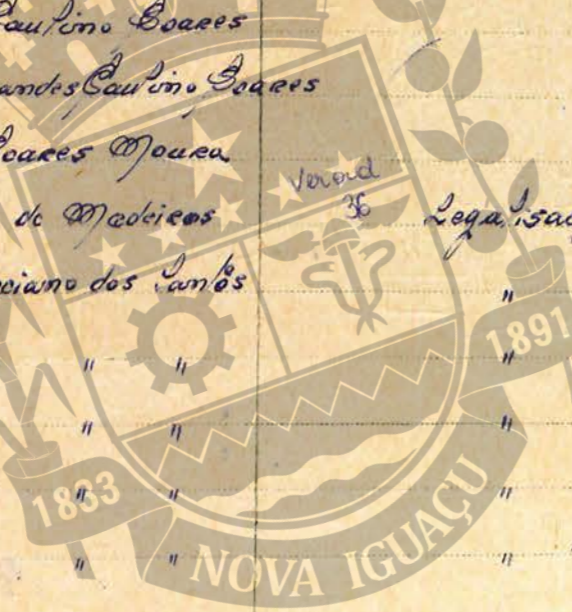 Paulino Soares
andes Paulino Soares
Soares Moura
Verord
36
de Medeiros Legalisaç
ciano dos Santos "
" " "
" " "
" " "
" " "
1833
1891
NOVA IGUAÇU